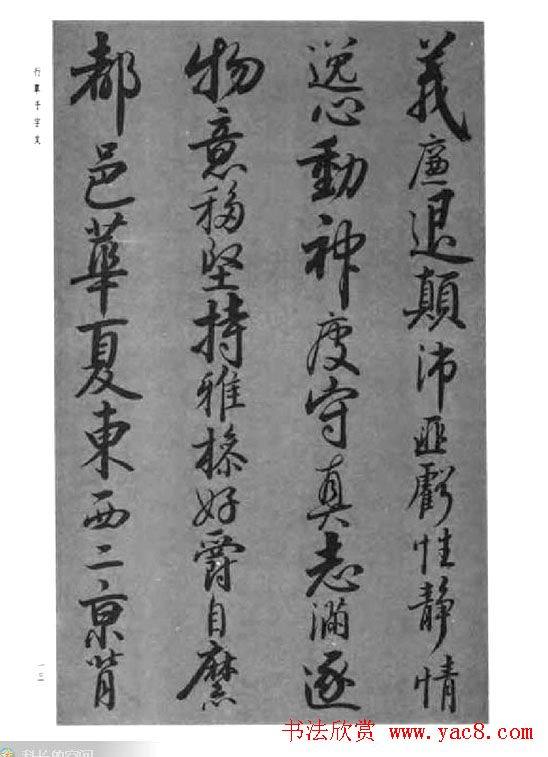 義廉退顛沛匪虧性静情
逸心動神疲守真志滿逐
物意移堅持雅操好爵自縻
都邑華夏東西二京背
行草千字文
书法欣赏 www.yac8.com